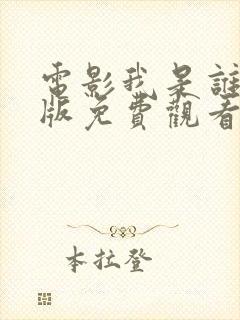 電影我是誰
版免費觀看
本拉登